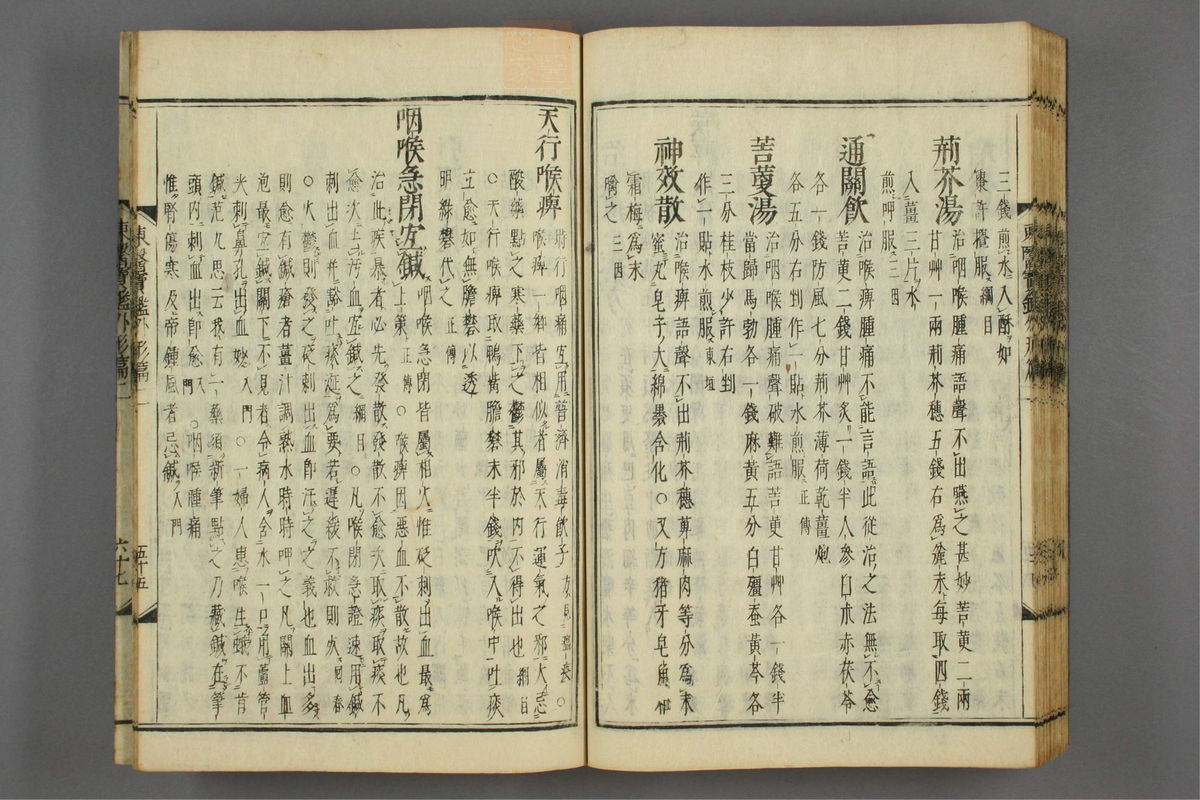 三錢煎水入酥如
棗許攪服綱目
荊芥湯 治咽喉腫痛語聲不出嚥之甚妙苦莄二兩
甘艸一兩荊芥穗五錢右爲麄末每取四錢
入薑三片水
煎呷服三因
通關飮 治喉痺腫痛不能言語此從治之法無不愈
苦莄二錢甘艸炙一錢半人參白朮赤茯苓
各一錢防風七分荊芥薄荷乾薑炮
各五分右剉作一貼水煎服正傳
苦莄湯 治咽喉腫痛聲破難語苦莄甘艸各一錢半
當歸馬勃各一錢麻黃五分白殭蚕黃芩各
三分桂枝少許右剉
作一貼水煎服東垣
神效散 治喉痺語聲不出荊芥穗萆麻肉等分爲末
蜜丸皂子大綿褁含化○又方猪牙皂角和
霜梅爲末
噙之三因
天行喉痺 時行咽痛宜用普濟消毒飮子方見瘟疫○
喉痺一種皆相似者屬天行運氣之邪大忌
酸藥點之寒藥下之鬱其邪於內不得出也綱目
○天行喉痺取鴨觜膽礬末半錢吹入喉中吐痰
立愈如無膽礬以透
明綠礬代之正傳
咽喉急閉宜鍼 咽喉急閉皆屬相火惟砭刺出血最爲
上策正傳○喉痺因惡血不散故也凡
治此疾暴者必先發散發散不愈次取痰取痰不
愈次去汚血宜鍼之綱目○凡喉閉急證速用鍼
刺出血幷豁吐痰涎爲要若遲緩不救則死回春
○火鬱則發之砭刺出血卽汗之之義也血出多
則愈有鍼瘡者薑汁調熱水時時呷之凡關上血
泡最宜鍼關下不見者令病人含水一口用蘆管
尖刺鼻孔出血妙入門○一婦人患喉生蛾不肯
鍼范九思云我有一藥須新筆點之乃藏鍼在筆
頭內刺血出卽愈入門○咽喉腫痛
惟腎傷寒及帝鍾風者忌鍼入門
東醫寶鑑外形篇二
五十五
六十七